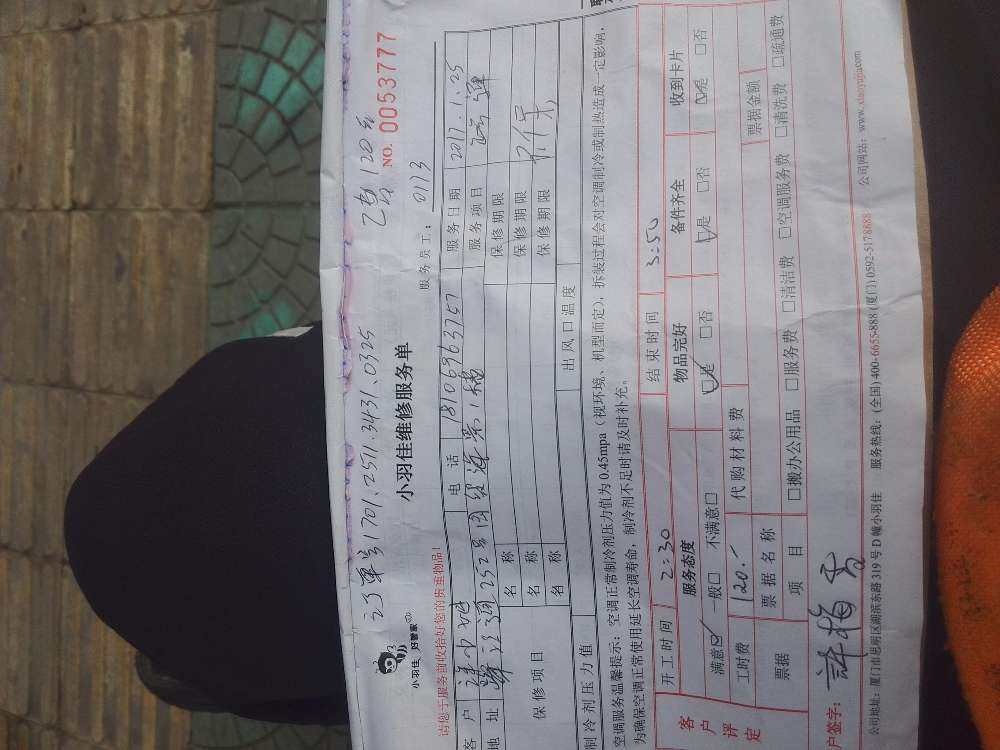 订单号1701.2511.3431.0325 2台120元
小羽佳 好管家 小羽佳维修服务单 NO. 0053777
服务员工：0113
请您于服务前收拾好您的贵重物品！
客 户 电 话 18106963757 服务日期 2017.1.25
地 址 252号 1楼 服务项目
保修项目 名 称 保修期限
名 称 保修期限
名 称 保修期限
制冷剂压力值 出风口温度
空调服务温馨提示：空调正常制冷剂压力值为 0.45mpa（视环境、机型而定），拆装过程会对空调制冷或制热造成一定影响，
为确保空调正常使用延长空调寿命，制冷剂不足时请及时补充。
开工时间 2:30 结束时间 3:50
客户评定 服务态度 物品完好 备件齐全 收到卡片
满意☑ 一般□ 不满意□ ☑是 □否 ☑是 □否 ☑是 □否
工时费 120.- 代购材料费
票据 票据名称 票据金额
项 目 □搬办公用品 □服务费 □清洁费 □空调服务费 □清洗费 □疏通费
户签字：许梅香
公司地址：厦门市思明区湖滨东路 319 号 D 幢小羽佳 服务热线：(全国) 400-6655-888 (厦门) 0592-5178888 公司网站：www.xiaoyujia.com